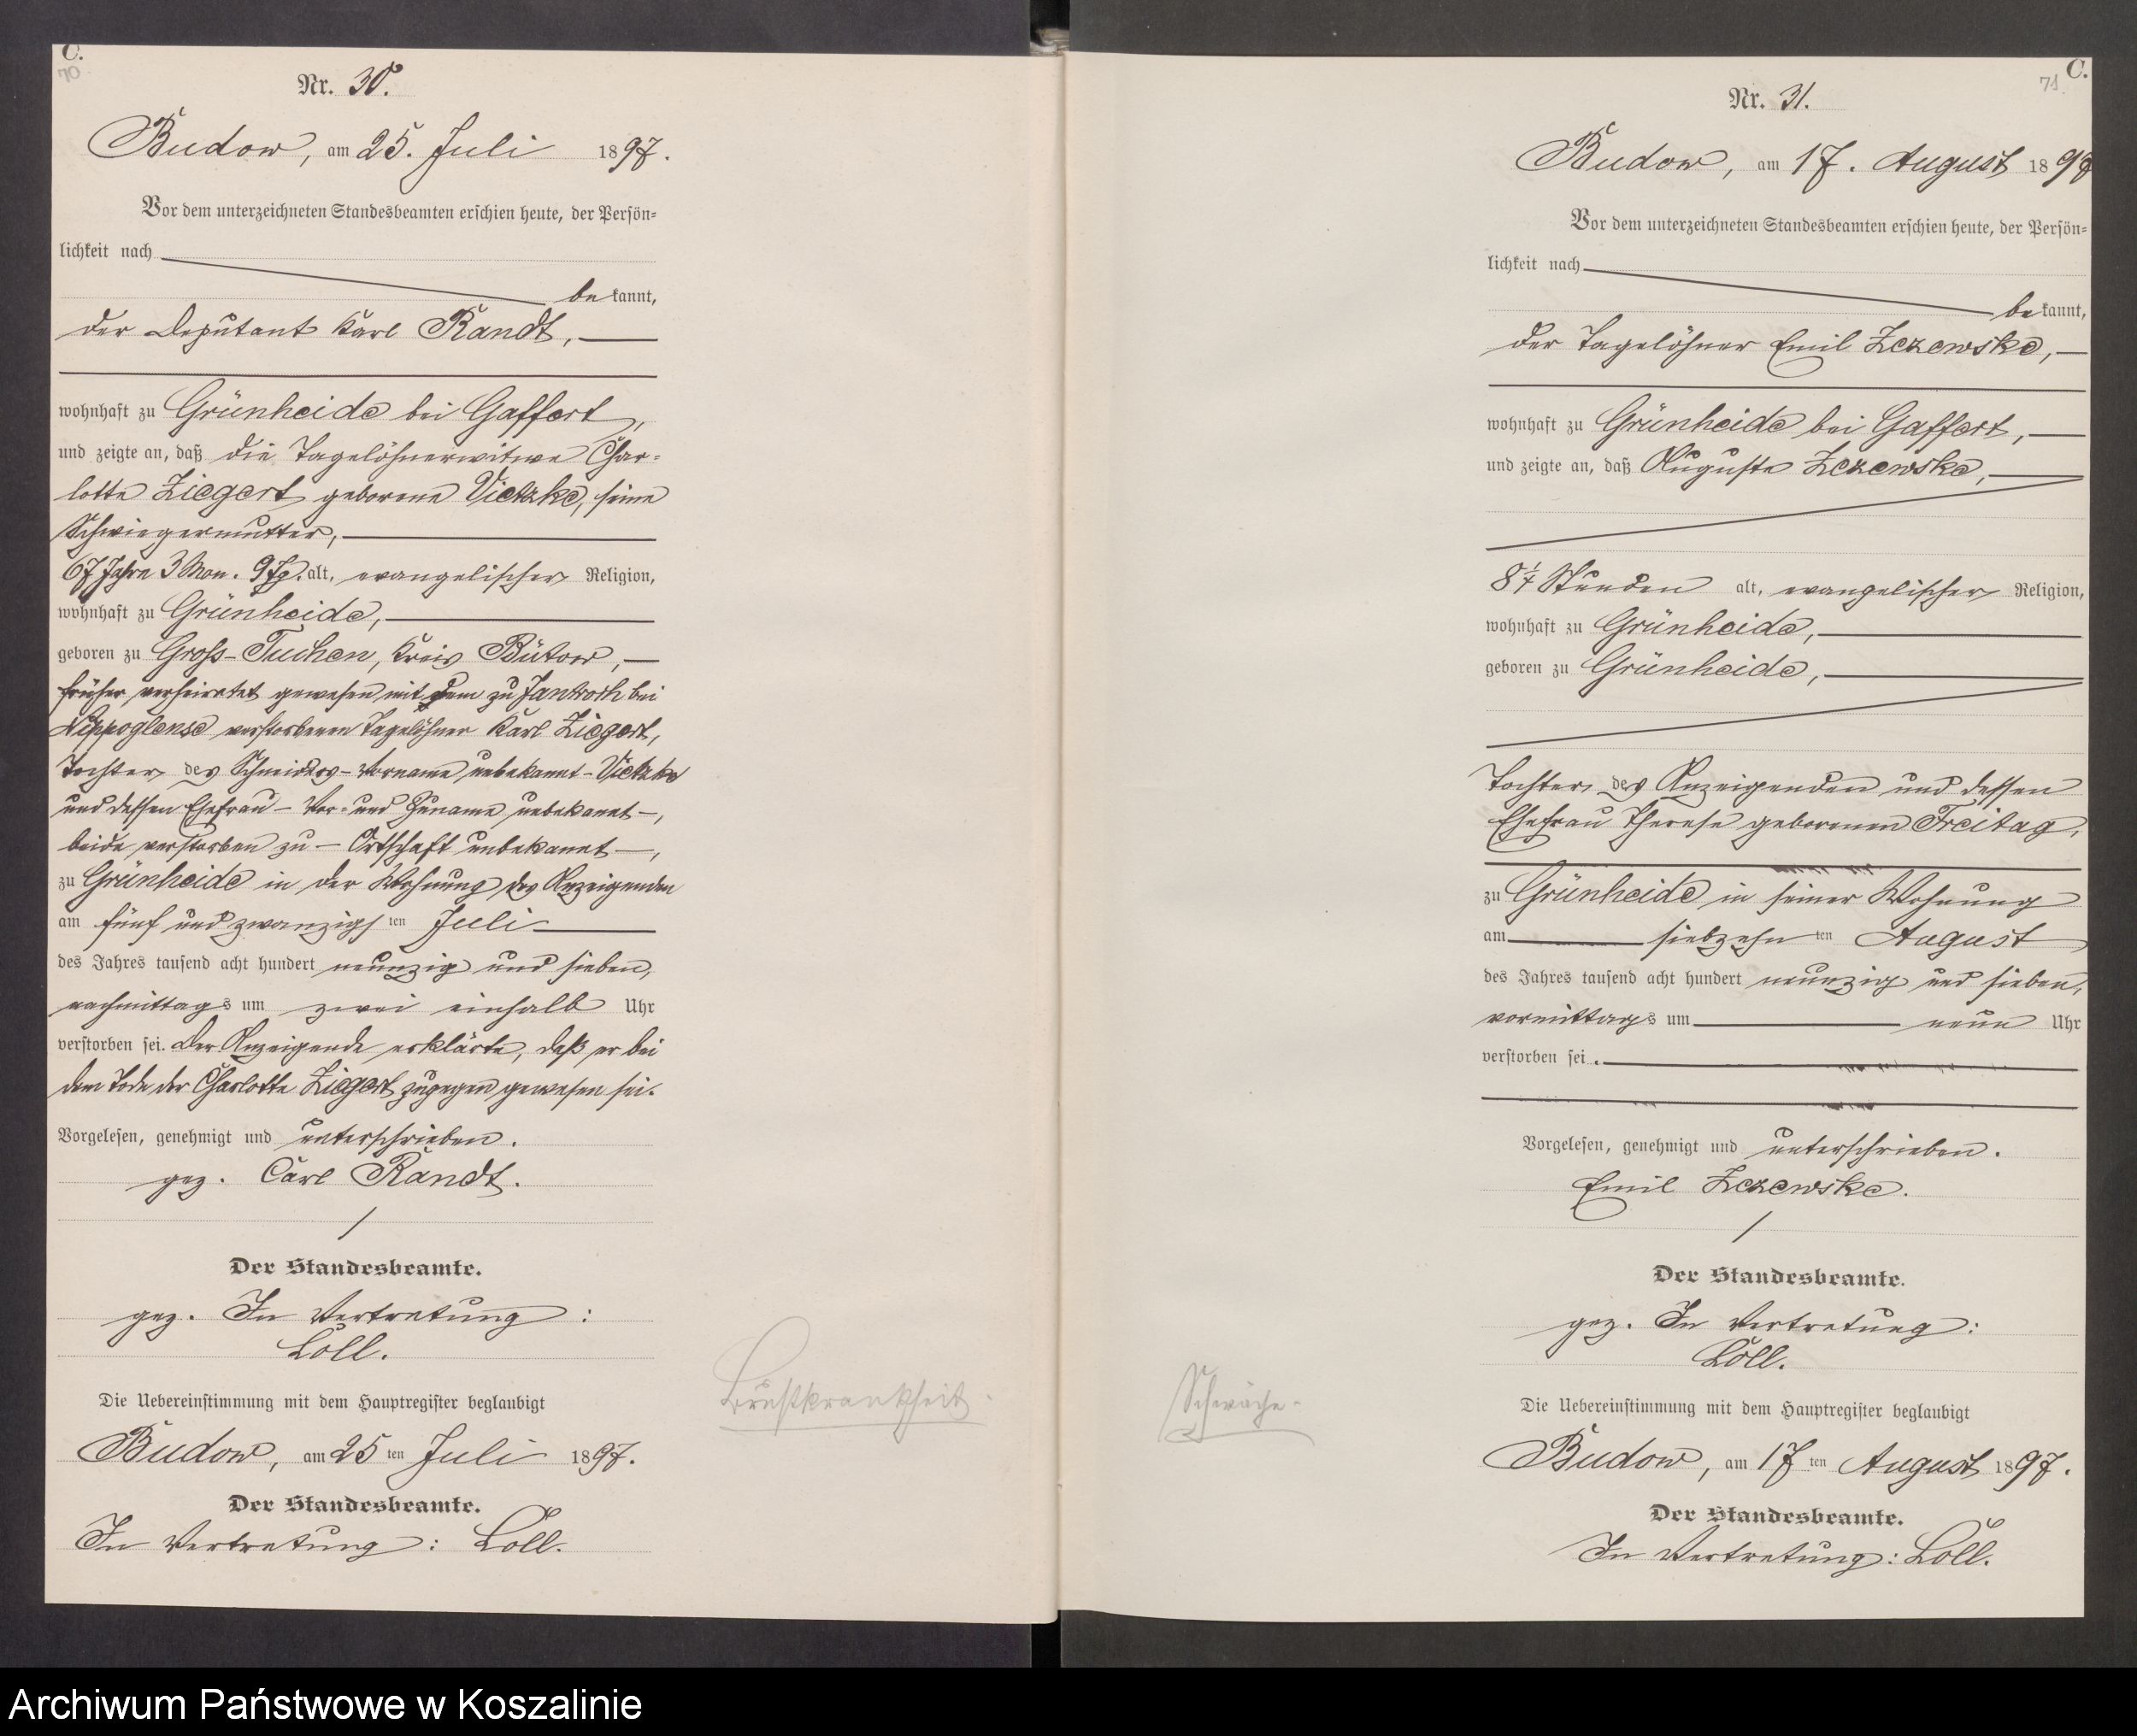 C.
70
Nr. 30.
Budow, am 25. Juli 1897.
Vor dem unterzeichneten Standesbeamten erschien heute, der Persön-
lichkeit nach
bekannt,
der Deputant Karl Randt,
wohnhaft zu Grünheide bei Gaffert,
und zeigte an, daß die Tagelöhnerwitwe Char-
lotte Ziegert geborene Vietzke, seine
Schwiegermutter,
67 Jahre 3 Mon. 9 Tg. alt, evangelischer Religion,
wohnhaft zu Grünheide,
geboren zu Groß-Tuchen, Kreis Bütow,
früher verheiratet gewesen mit dem zu Jantrosh bei
Nippoglense verstorbenen Tagelöhner Karl Ziegert,
Tochter des Schneiders - Vorname unbekannt - Vietzke
und dessen Ehefrau - Vor- und Zuname unbekannt -,
beide verstorben zu - Ortschaft unbekannt -,
zu Grünheide in der Wohnung des Anzeigenden
am fünf und zwanzigsten Juli
des Jahres tausend acht hundert neunzig und sieben,
nachmittags um zwei einhalb Uhr
verstorben sei. Der Anzeigende erklärte, daß er bei
dem Tode der Charlotte Ziegert zugegen gewesen sei.
Vorgelesen, genehmigt und unterschrieben.
gez. Carl Randt.
Der Standesbeamte.
gez. In Vertretung:
Loll.
Die Uebereinstimmung mit dem Hauptregister beglaubigt
Budow, am 25ten Juli 1897.
Der Standesbeamte.
In Vertretung: Loll.
Brustkrankheit.
C.
71
Nr. 31.
Budow, am 17. August 1897
Vor dem unterzeichneten Standesbeamten erschien heute, der Persön-
lichkeit nach
bekannt,
der Tagelöhner Emil Zezewske,
wohnhaft zu Grünheide bei Gaffert,
und zeigte an, daß Auguste Zezewske,
8¼ Stunden alt, evangelischer Religion,
wohnhaft zu Grünheide,
geboren zu Grünheide,
Tochter des Anzeigenden und dessen
Ehefrau Therese geborenen Freitag,
zu Grünheide in seiner Wohnung
am siebzehnten August
des Jahres tausend acht hundert neunzig und sieben,
vormittags um neun Uhr
verstorben sei.
Vorgelesen, genehmigt und unterschrieben.
Emil Zezewske.
Der Standesbeamte.
gez. In Vertretung:
Loll.
Die Uebereinstimmung mit dem Hauptregister beglaubigt
Budow, am 17ten August 1897.
Der Standesbeamte.
In Vertretung: Loll.
Schwäche.
Archiwum Państwowe w Koszalinie